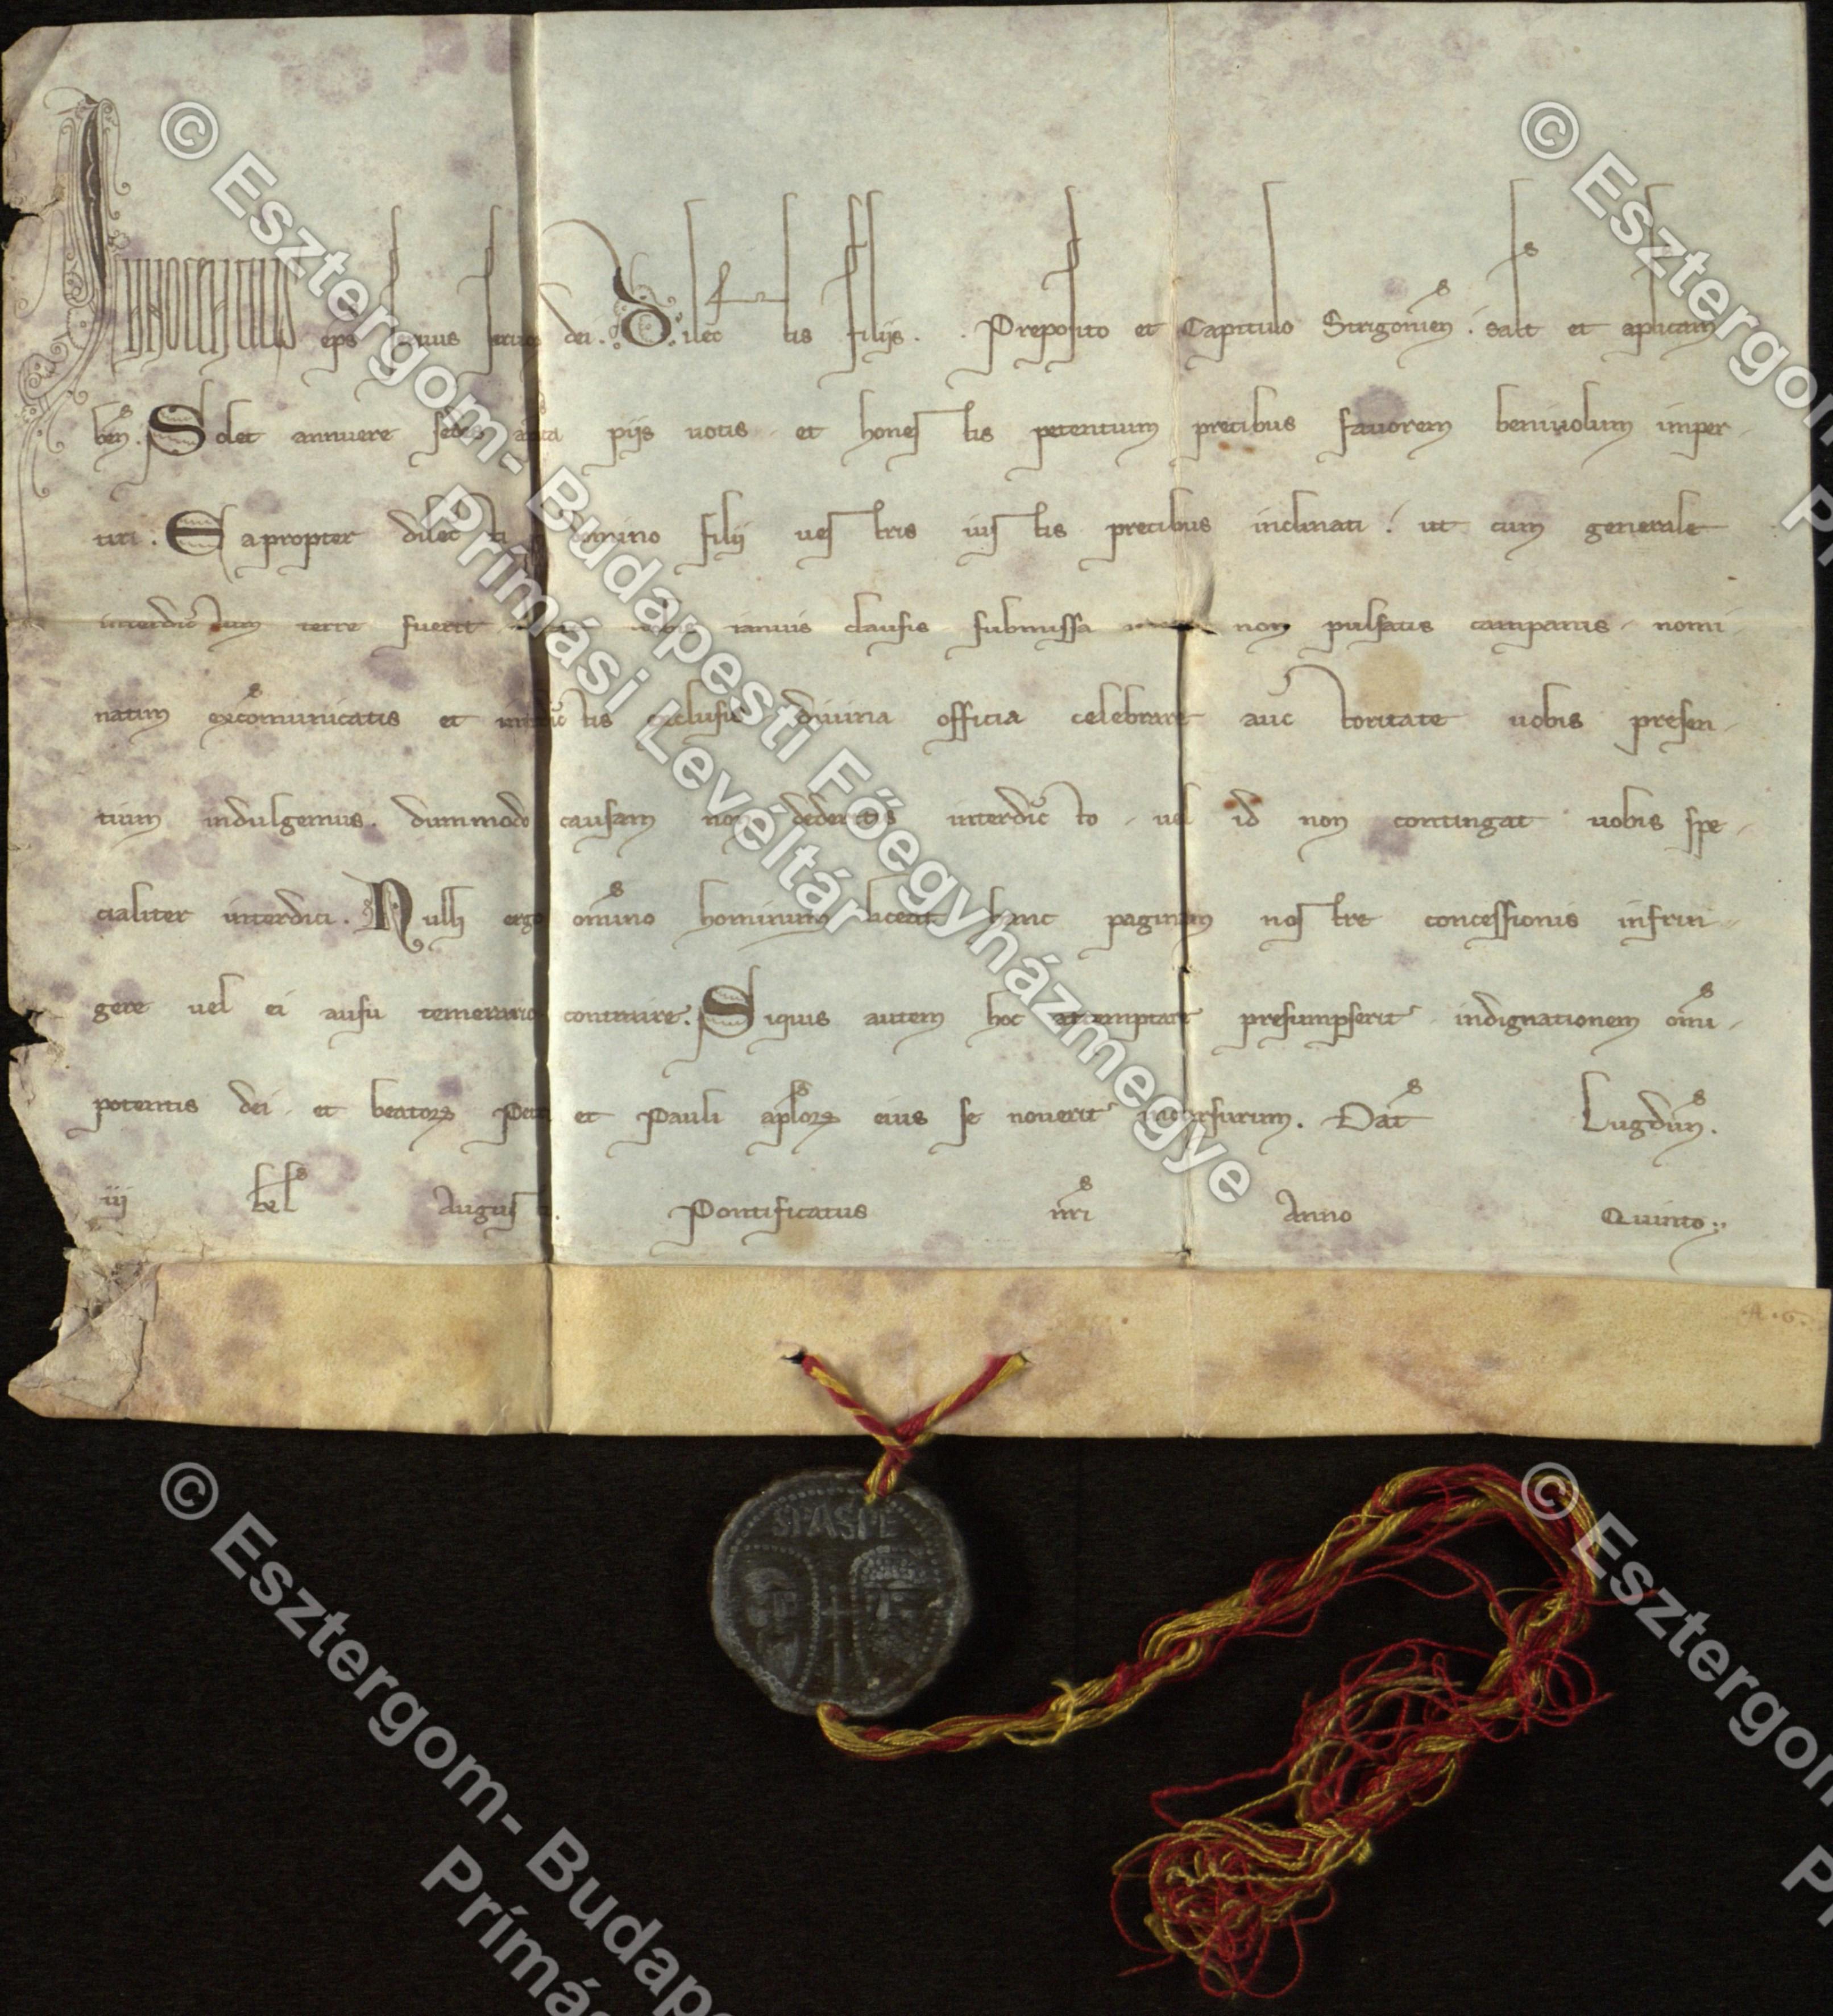 Innocentius eps seruus seruoꝝ dei. Dilectis filijs . . Preposito et Capitulo Strigonien̄. salt̄ et aplicam
ben̄. Solet annuere sedes aplica pijs uotis et honestis petentium precibus fauorem beniuolum imper-
tiri. Eapropter dilecti domino filij uestris iustis precibus inclinati ut cum generale
interdictum terre fuerit ianuis clausis submissa non pulsatis campanis nomi
natim excomunicatis et exclusis diuina officia celebrare auctoritate uobis presen-
tium indulgemus. dummodo causam non dederitis interdicto uel id non contingat uobis spe-
cialiter interdici. Nulli ergo omino hominum liceat hanc paginam nostre concessionis infrin-
gere uel ei ausu temerario contraire. Siquis autem hoc attemptare presumpserit indignationem omi-
potentis dei et beatoꝝ Petri et Pauli aploꝝ eius se nouerit incursurum. Dat̄ Lugdun̄.
iij kl Augusti. Pontificatus nri Anno Quinto
A. G.
SPASPE
© Esztergom- Budapesti Főegyházmegye
Prímási Levéltár
© Esztergom
P
© Esztergom- Budap
Prímás
© Esztergom
P